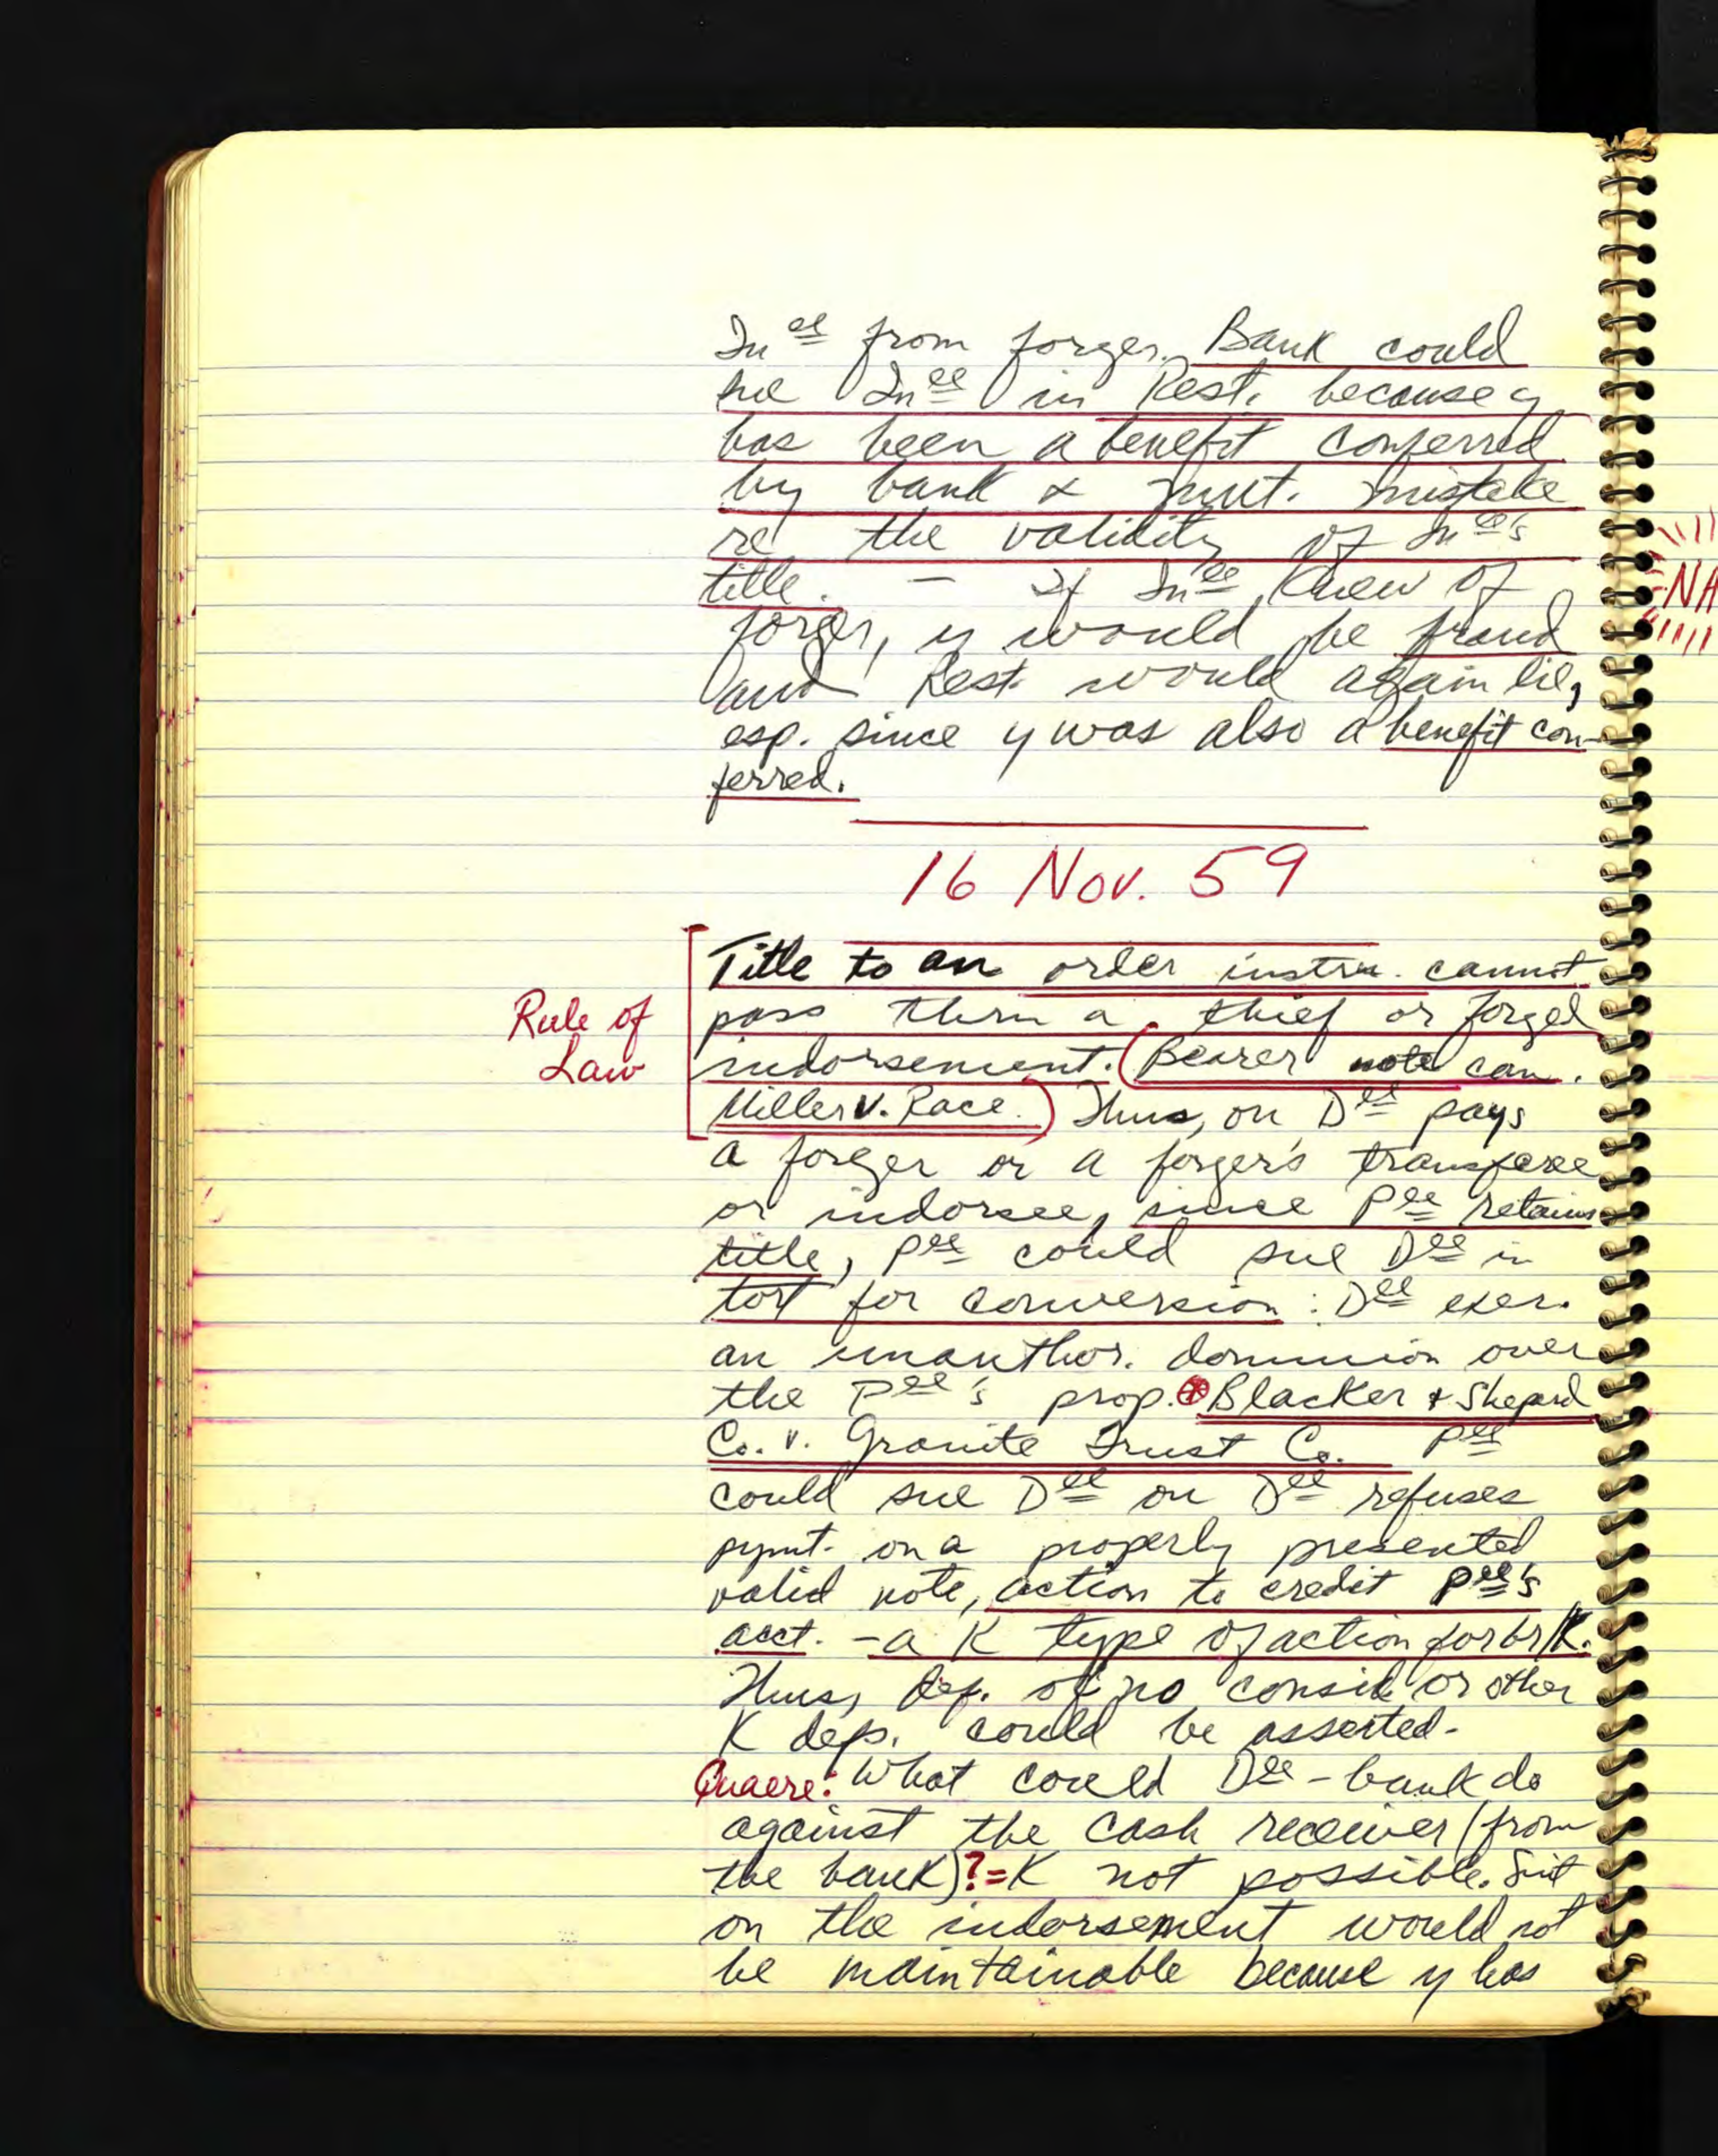 In ee from forger. Bank could
sue In ee in Rest. because y
has been a benefit conferred
by bank & mut. mistake
re the validity of In ee's
title. — If In ee knew of
forger, y would be fraud
and Rest. would again lie,
esp. since y was also a benefit con-
ferred.
16 Nov. 59
Rule of
Law
Title to an order instru. cannot
pass thru a thief or forged
indorsement. (Bearer note can.
Miller v. Race.) Thus, on D ee pays
a forger or a forger's transferee
or indorsee, since P ee retains
title, P ee could sue D ee in
tort for conversion: D ee exer.
an unauthor. dominion over
the P ee's prop. ⊛ Blacker & Shepard
Co. v. Granite Trust Co. P ee
could sue D ee on D ee refuses
pymt. on a properly presented
valid note, action to credit P ee's
acct. - a K type of action for br/K.
Thus, def. of no consid. or other
K defs. could be asserted.
Quaere: What could D ee - bank do
against the cash receiver (from
the bank)? = K not possible. Suit
on the indorsement would not
be maintainable because y has
NA